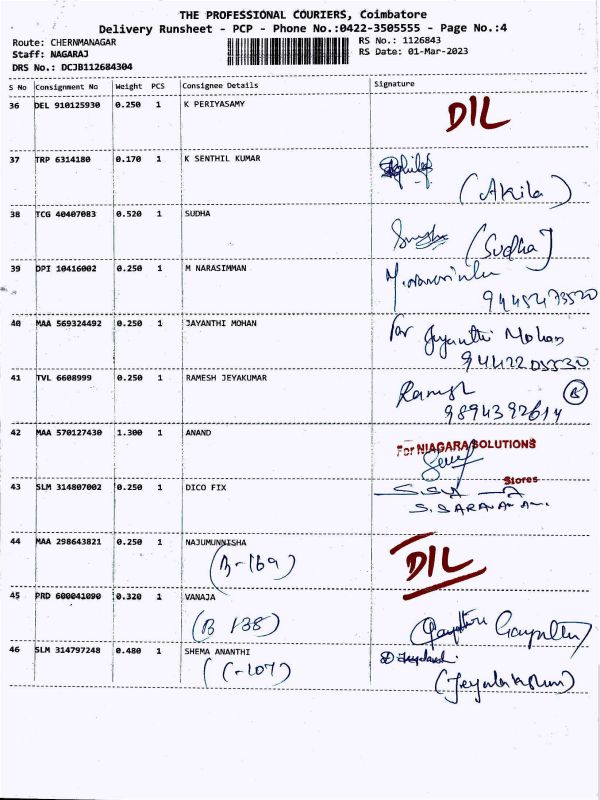 THE PROFESSIONAL COURIERS, Coimbatore
Delivery Runsheet - PCP - Phone No.:0422-3505555 - Page No.:4
Route: CHERNMANAGAR
RS No.: 1126843
Staff: NAGARAJ
RS Date: 01-Mar-2023
DRS No.: DCJB112684304
S No Consignment No Weight PCS Consignee Details Signature
36 DEL 910125930 0.250 1 K PERIYASAMY DIL
37 TRP 6314180 0.170 1 K SENTHIL KUMAR
(Akila)
38 TCG 40407083 0.520 1 SUDHA
(Sudha)
39 DPI 10416002 0.250 1 M NARASIMMAN
9445473520
40 MAA 569324492 0.250 1 JAYANTHI MOHAN For Jeyanthi Mohan
41 TVL 6608999 0.250 1 RAMESH JEYAKUMAR Ramesh B
9894392614
42 MAA 570127430 1.300 1 ANAND For NIAGARA SOLUTIONS
Stores
43 SLM 314807002 0.250 1 DICO FIX
44 MAA 298643821 0.250 1 NAJUMUNNISHA DIL
(B-169)
45 PRD 600041090 0.320 1 VANAJA
(B 138)
46 SLM 314797248 0.480 1 SHEMA ANANTHI
(C-107)